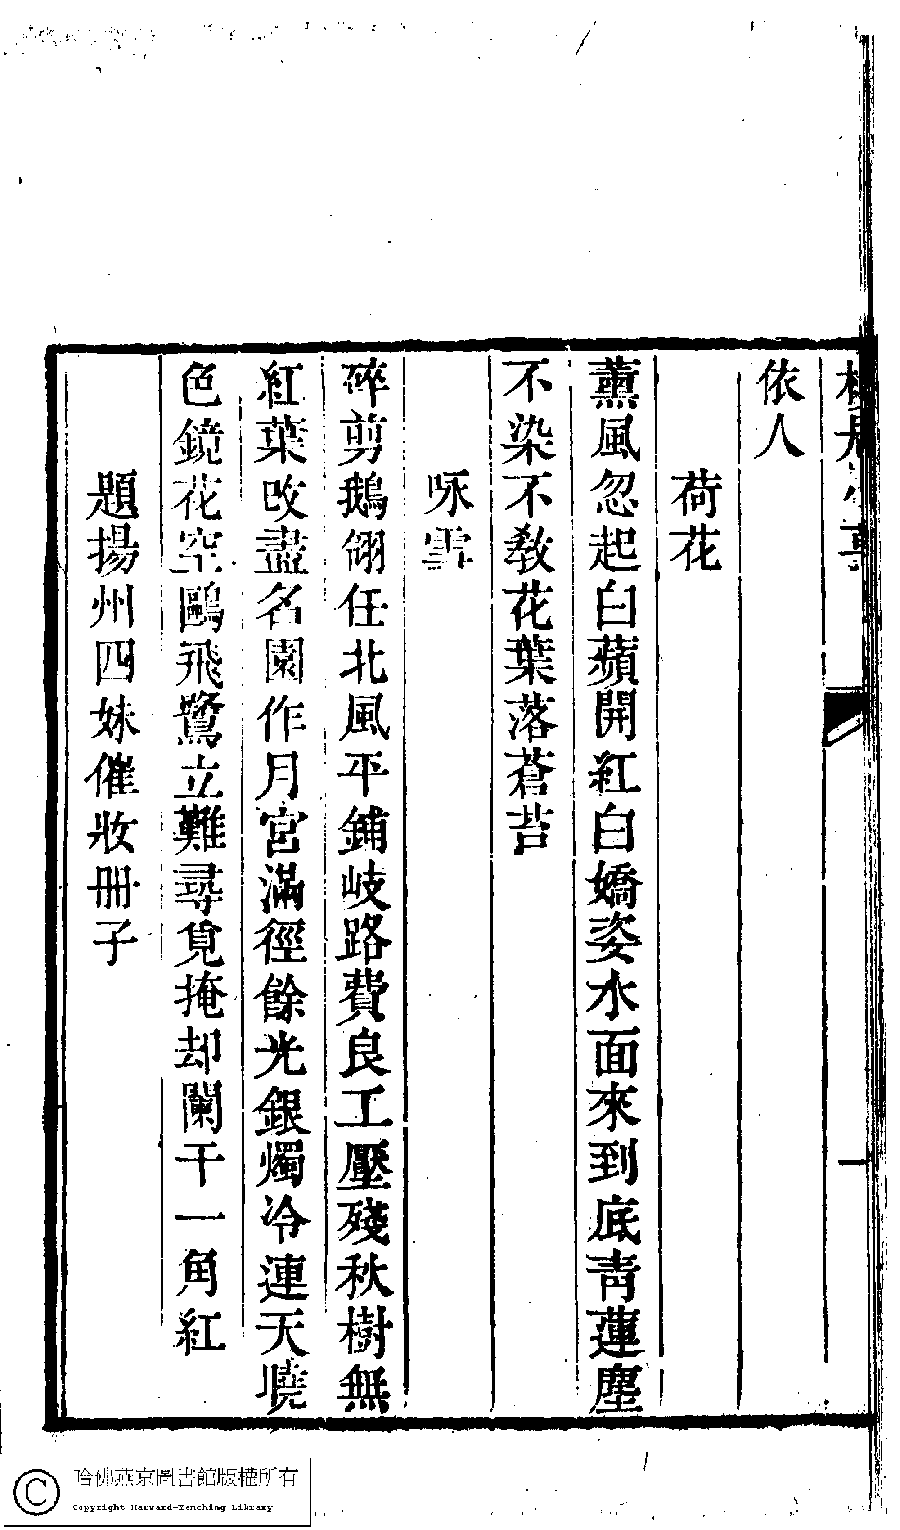 依人
荷花
薰風忽起白蘋開紅白嬌姿水面來到底青蓮塵
不染不敎花葉落蒼苔
咏雪
碎剪鵝翎任北風平鋪岐路費良工壓殘秋樹無
紅葉改盡名園作月宮滿徑餘光銀燭冷連天曉
色鏡花空鷗飛鷺立難尋覓掩却闌干一角紅
題揚州四妹催妝冊子
一
哈佛燕京圖書館版權所有
Copyright Harvard-Yenching Library